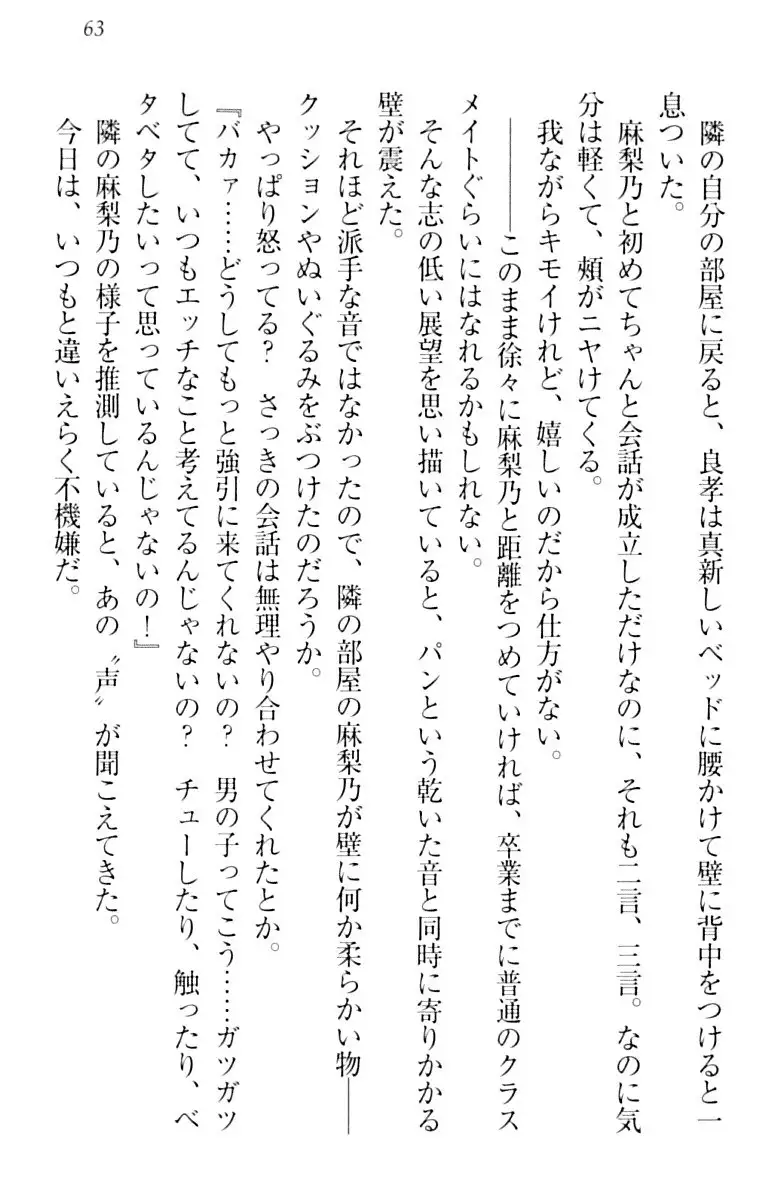 63
隣の自分の部屋に戻ると、良孝は真新しいベッドに腰かけて壁に背中をつけると一
息ついた。
麻梨乃と初めてちゃんと会話が成立しただけなのに、それも二言、三言。なのに気
分は軽くて、頬がニヤけてくる。
我ながらキモイけれど、嬉しいのだから仕方がない。
――このまま徐々に麻梨乃と距離をつめていければ、卒業までに普通のクラス
メイトぐらいにはなれるかもしれない。
そんな志の低い展望を思い描いていると、パンという乾いた音と同時に寄りかかる
壁が震えた。
それほど派手な音ではなかったので、隣の部屋の麻梨乃が壁に何か柔らかい物――
クッションやぬいぐるみをぶつけたのだろうか。
やっぱり怒ってる?　さっきの会話は無理やり合わせてくれたとか。
『バカァ……どうしてもっと強引に来てくれないの?　男の子ってこう……ガツガツ
してて、いつもエッチなこと考えてるんじゃないの?　チューしたり、触ったり、ベ
タベタしたいって思っているんじゃないの!』
隣の麻梨乃の様子を推測していると、あの〝声〟が聞こえてきた。
今日は、いつもと違いえらく不機嫌だ。